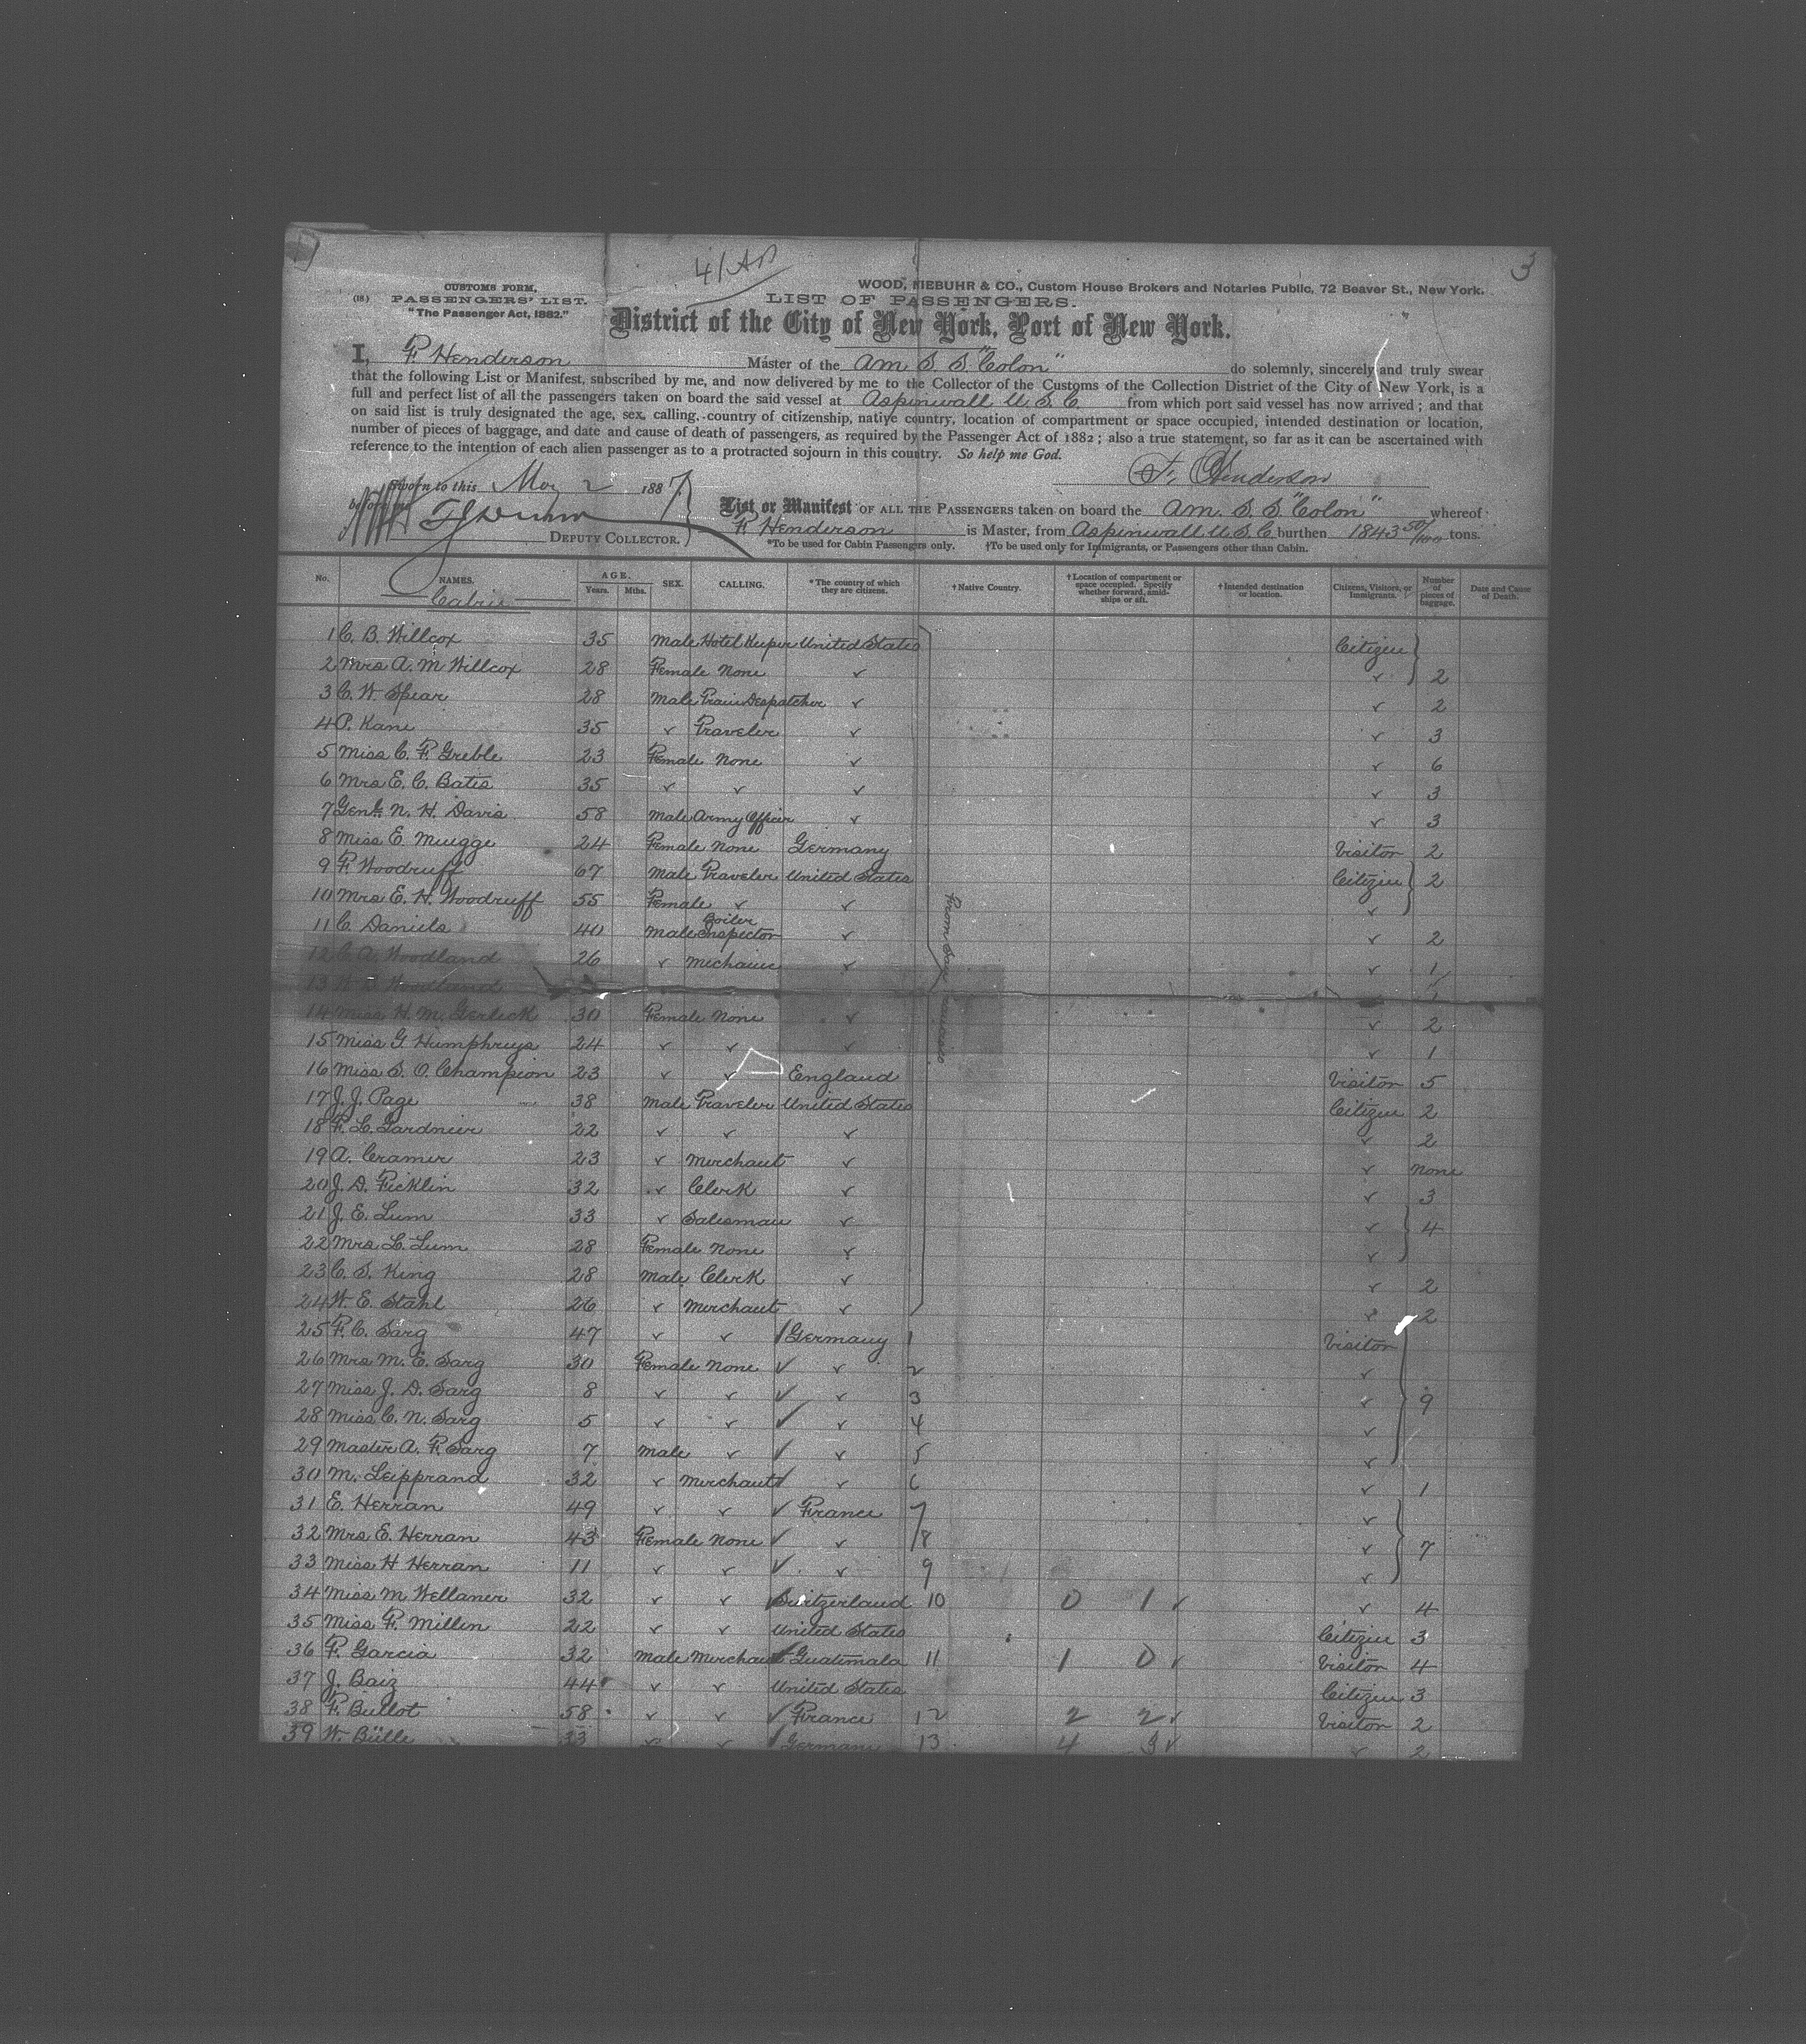 3
CUSTOMS FORM,
(18.) PASSENGERS' LIST.
"The Passenger Act, 1882."
WOOD, NIEBUHR & CO., Custom House Brokers and Notaries Public, 72 Beaver St., New York.
LIST OF PASSENGERS.
District of the City of New York, Port of New York.
I, F. Henderson Master of the Am S S "Colon" do solemnly, sincerely and truly swear
that the following List or Manifest, subscribed by me, and now delivered by me to the Collector of the Customs of the Collection District of the City of New York, is a
full and perfect list of all the passengers taken on board the said vessel at Aspinwall U. S. C. from which port said vessel has now arrived; and that
on said list is truly designated the age, sex, calling, country of citizenship, native country, location of compartment or space occupied, intended destination or location,
number of pieces of baggage, and date and cause of death of passengers, as required by the Passenger Act of 1882; also a true statement, so far as it can be ascertained with
reference to the intention of each alien passenger as to a protracted sojourn in this country. So help me God.
F. Henderson
Sworn to this May 2 1887
before me
DEPUTY COLLECTOR.
List or Manifest OF ALL THE PASSENGERS taken on board the Am. S. S. "Colon" whereof
F. Henderson is Master, from Aspinwall U. S. C burthen 1843 50/100 tons.
*To be used for Cabin Passengers only. †To be used only for Immigrants, or Passengers other than Cabin.
No. NAMES. AGE. Years. Mths. SEX. CALLING. *The country of which they are citizens. †Native Country. †Location of compartment or space occupied. Specify whether forward, amidships or aft. †Intended destination or location. Citizens, Visitors, or Immigrants. Number of pieces of baggage. Date and Cause of Death.
Cabin
1 C. B. Willcox 35 Male Hotel Keeper United States Citizen
2 Mrs A. M Willcox 28 Female None ✓ ✓ 2
3 C. W. Spear 28 Male Train Despatcher ✓ ✓ 2
4 P. Kane 35 ✓ Traveler ✓ ✓ 3
5 Miss C. F. Greble 23 Female None ✓ ✓ 6
6 Mrs E. C. Bates 35 ✓ ✓ ✓ ✓ 3
7 Genl. N. H. Davis 58 Male Army Officer ✓ ✓ 3
8 Miss E. Muegge 24 Female None Germany Visitor 2
9 F. Woodruff 67 Male Traveler United States Citizen 2
10 Mrs E. H. Woodruff 55 Female ✓ ✓ ✓
11 C. Daniels 40 Male Boiler Inspector ✓ ✓ 2
12 C. A. Woodland 26 ✓ Mechanic ✓ ✓ 1
13 Woodland
14 Miss H. M. Gerlick 30 Female None ✓ ✓ 2
15 Miss G. Humphreys 24 ✓ ✓ ✓ ✓ 1
16 Miss S. O. Champion 23 ✓ ✓ England Visitor 5
17 J. J. Page 38 Male Traveler United States Citizen 2
18 F. L. Gardnier 22 ✓ ✓ ✓ ✓ 2
19 A. Cramer 23 ✓ Merchant ✓ ✓ None
20 J. D. Ficklin 32 ✓ Clerk ✓ ✓ 3
21 J. E. Lum 33 ✓ Salesman ✓ ✓ 4
22 Mrs L. Lum 28 Female None ✓ ✓
23 C. S. King 28 Male Clerk ✓ ✓ 2
24 W. E. Stahl 26 ✓ Merchant ✓ ✓ 2
25 F. C. Sarg 47 ✓ ✓ Germany 1 Visitor
26 Mrs M. E. Sarg 30 Female None ✓ ✓ 2 ✓
27 Miss J. D. Sarg 8 ✓ ✓ ✓ ✓ 3 ✓ 9
28 Miss C. N. Sarg 5 ✓ ✓ ✓ ✓ 4 ✓
29 Master A. F. Sarg 7 Male ✓ ✓ ✓ 5 ✓
30 M. Leipprand 32 ✓ Merchant ✓ ✓ 6 ✓ 1
31 E. Herran 49 ✓ ✓ ✓ France 7 ✓
32 Mrs E. Herran 43 Female None ✓ ✓ 8 ✓ 7
33 Miss H Herran 11 ✓ ✓ ✓ ✓ 9 ✓
34 Miss M. Wellaner 32 ✓ ✓ Switzerland 10 0 1 ✓ ✓ 4
35 Miss F. Millen 22 ✓ ✓ United States Citizen 3
36 F. Garcia 32 Male Merchant Guatemala 11 1 0 ✓ Visitor 4
37 J. Baiz 44 ✓ ✓ United States Citizen 3
38 F. Bullot 58 ✓ ✓ ✓ France 12 2 2 ✓ Visitor 2
39 W. Bülle 33 ✓ ✓ Germany 13 4 3 ✓ ✓ 2